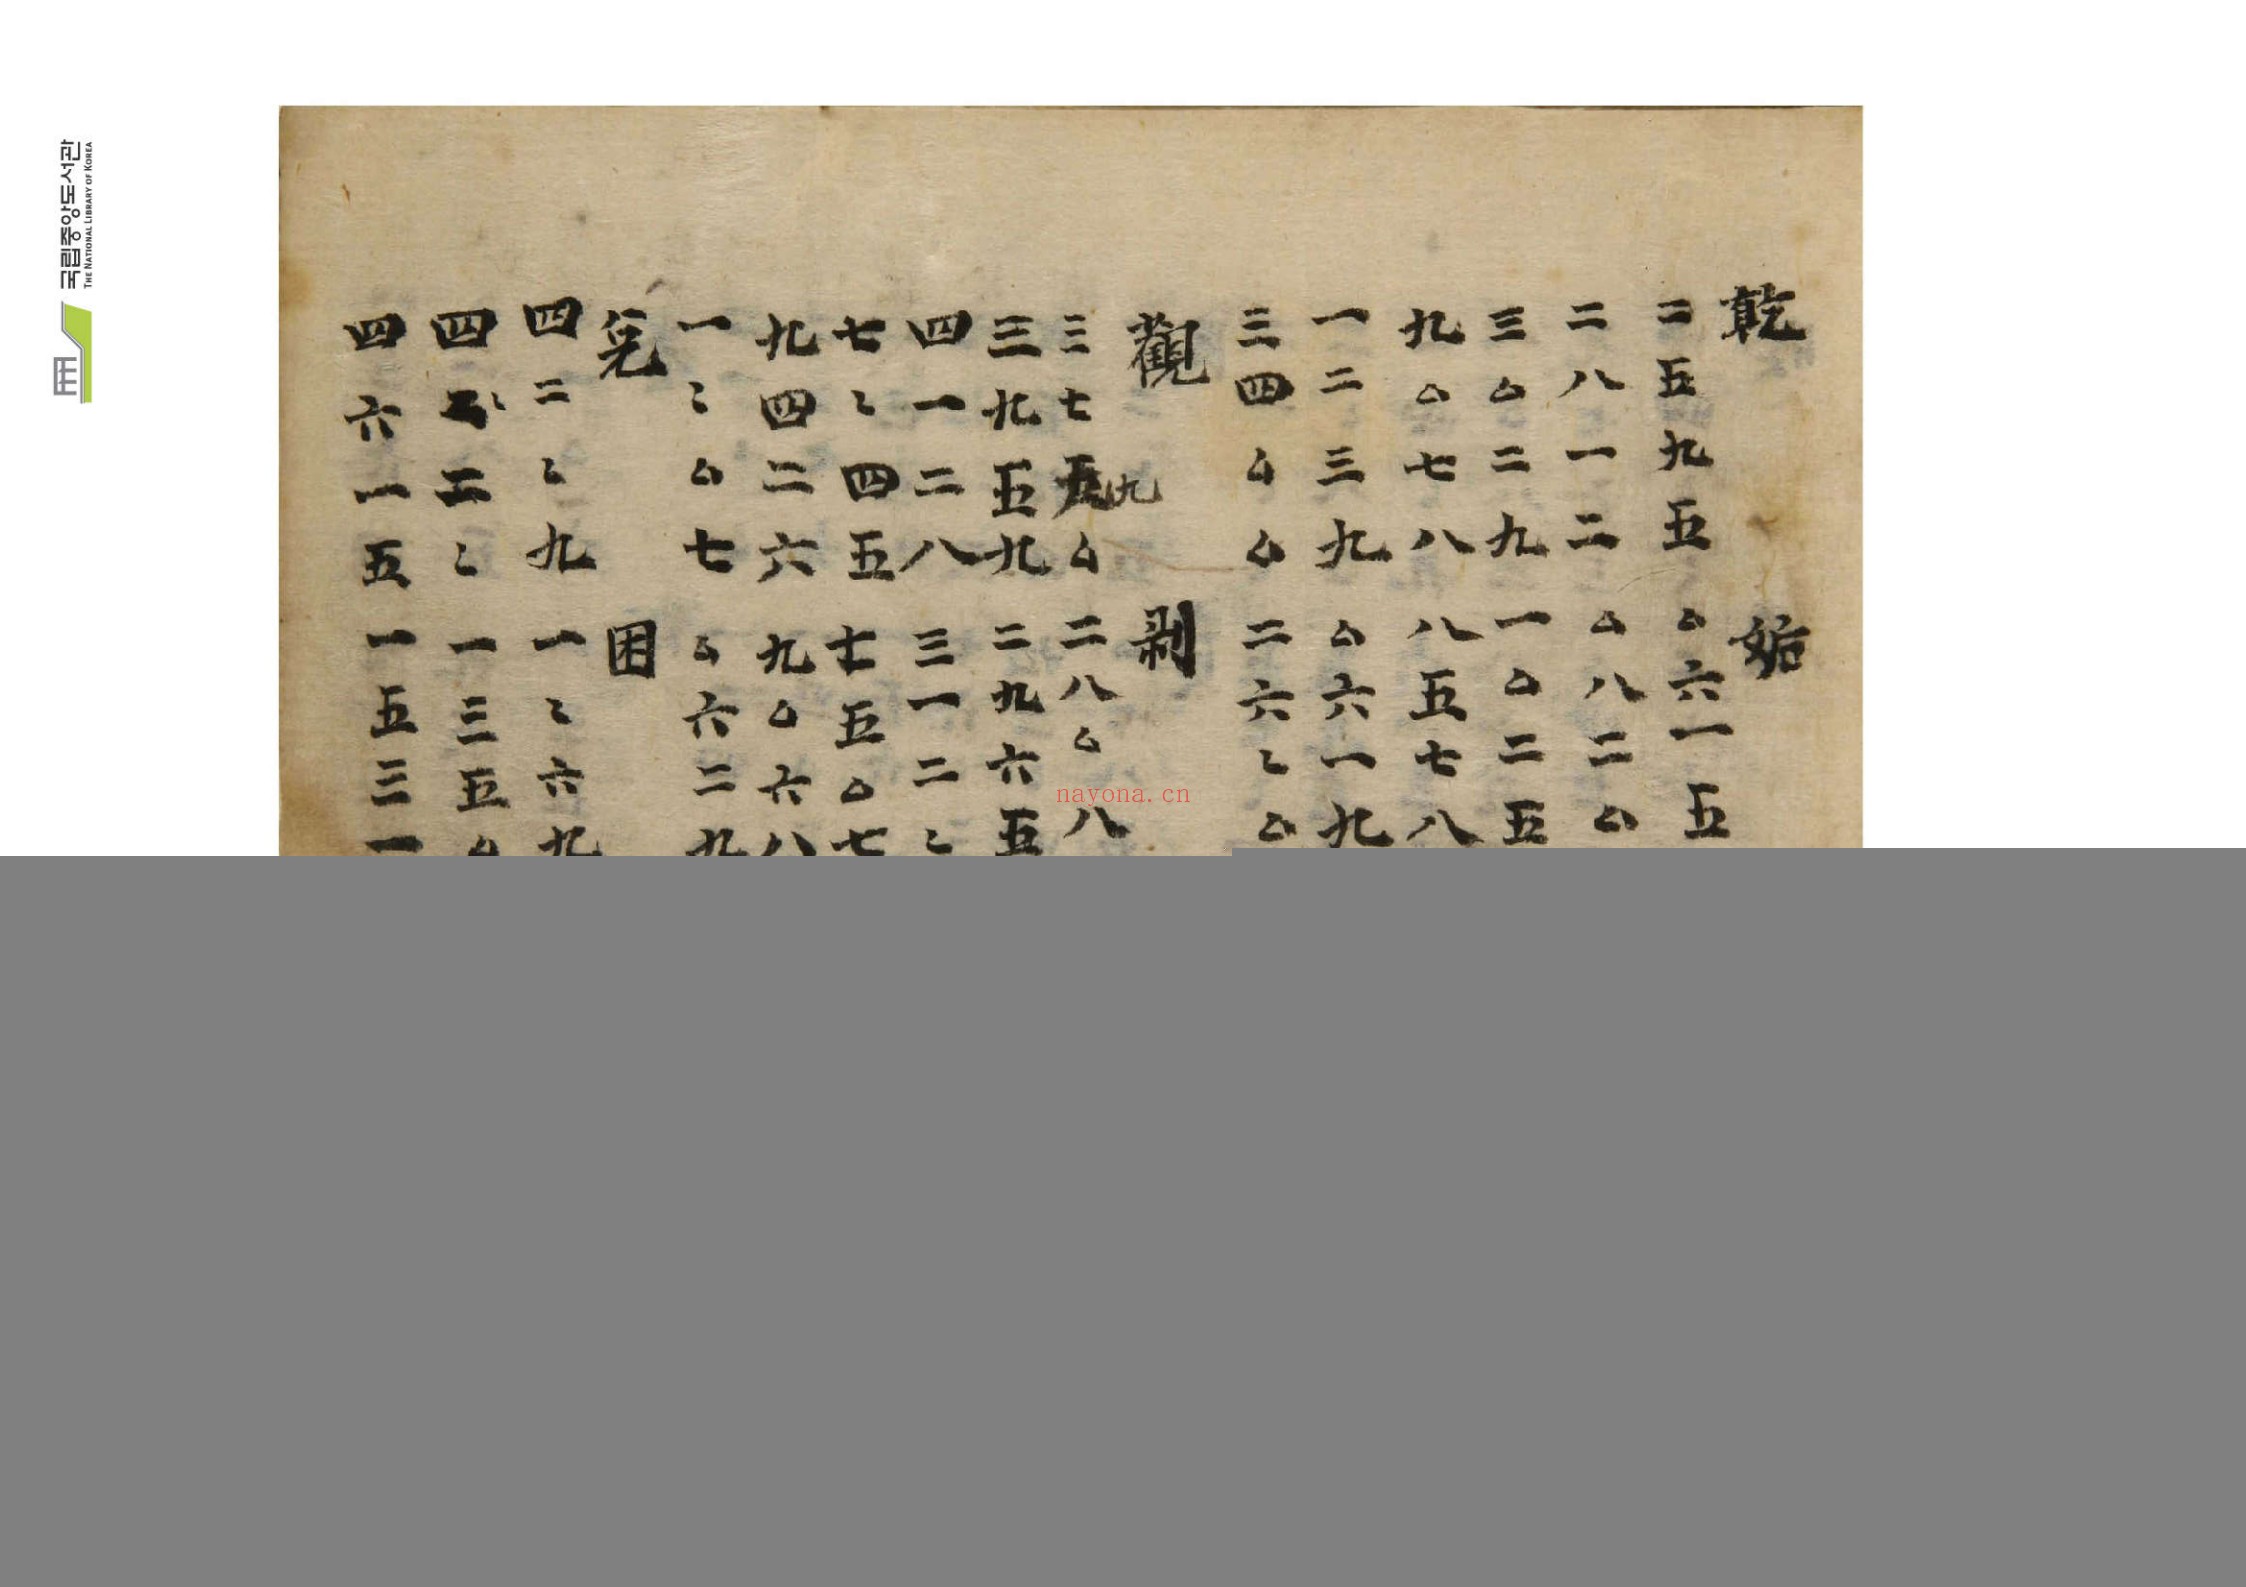 乾 姤
二五九五 厶六一五
二八一二 厶八二厶
三厶二九 一厶二五
九厶七八 八五七八
一二三九 厶六一九
三四厶厶 二六〻厶
觀 剥
三七九厶 二八厶八
三九五九 二九六五
四一二八 三一二〻
七〻四五 七五厶七
九四二六 九厶六八
一〻厶七 厶六二九
兌 困
四二〻九 一〻六九
四 二〻 一三五厶
四六一五 一五三一
국립중앙도서관
THE NATIONAL LIBRARY OF KOREA
nayona.cn